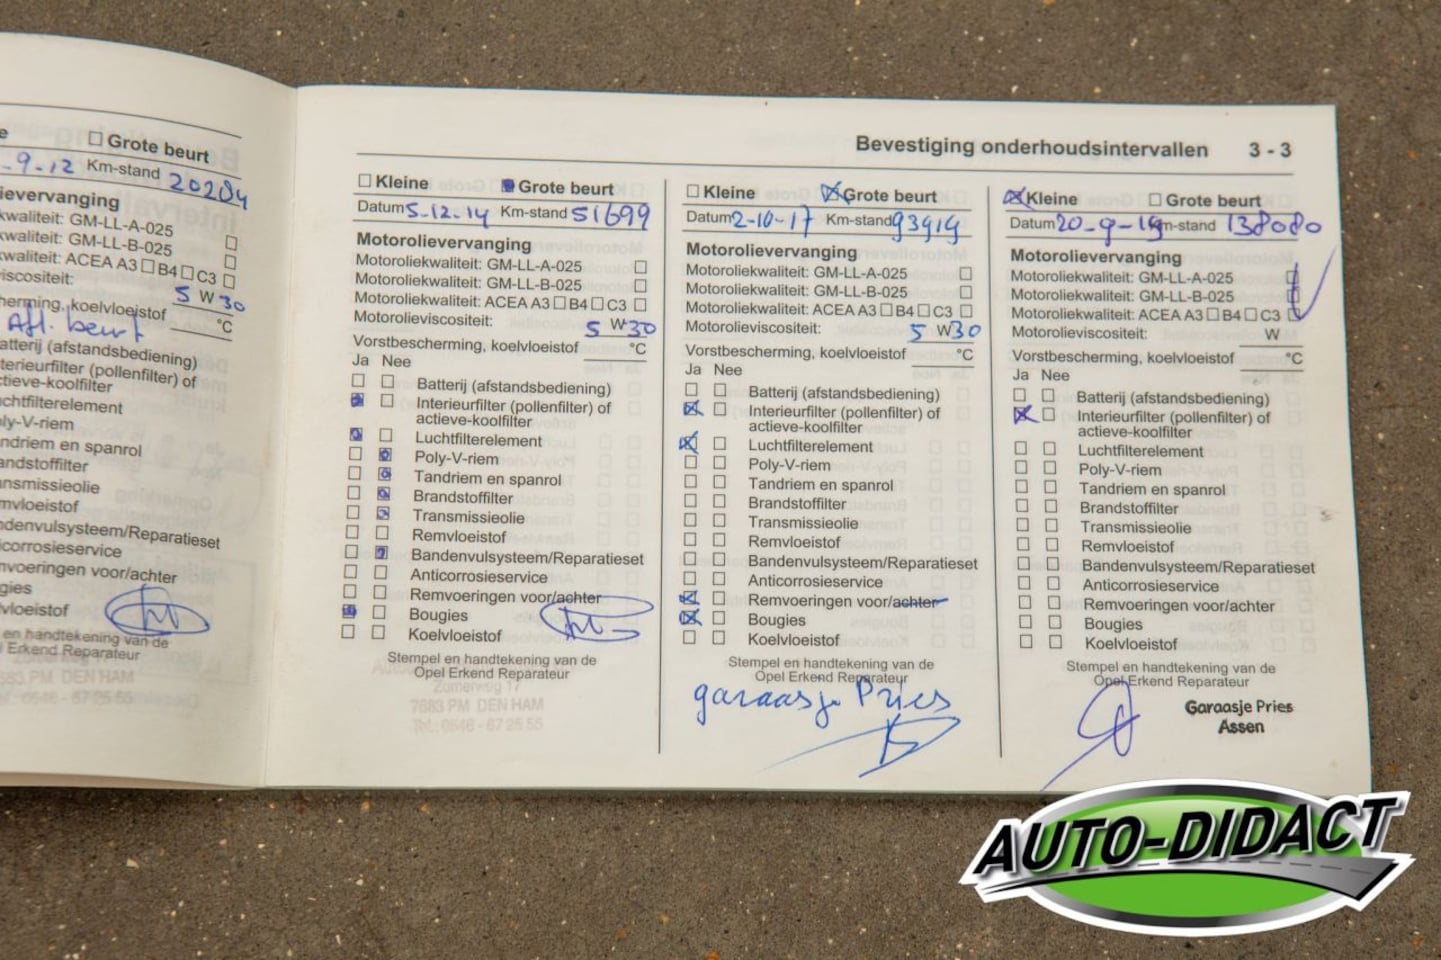 ☐ Grote beurt
-9-12 Km-stand 20284
lievervanging
kwaliteit: GM-LL-A-025 ☐
kwaliteit: GM-LL-B-025 ☐
kwaliteit: ACEA A3 ☐ B4 ☐ C3 ☐
viscositeit: 5 W 30
cherming, koelvloeistof °C
Afl. beurt
atterij (afstandsbediening)
terieurfilter (pollenfilter) of
ctieve-koolfilter
chtfilterelement
ly-V-riem
ndriem en spanrol
andstoffilter
nsmissieolie
mvloeistof
ndenvulsysteem/Reparatieset
icorrosieservice
nvoeringen voor/achter
gies
lvloeistof
en handtekening van de
l Erkend Reparateur
683 PM DEN HAM
Bevestiging onderhoudsintervallen 3 - 3
☐ Kleine ☒ Grote beurt
Datum 5-12-14 Km-stand 51699
Motorolievervanging
Motoroliekwaliteit: GM-LL-A-025 ☐
Motoroliekwaliteit: GM-LL-B-025 ☐
Motoroliekwaliteit: ACEA A3 ☐ B4 ☐ C3 ☐
Motorolieviscositeit: 5 W 30
Vorstbescherming, koelvloeistof °C
Ja Nee
☐ ☐ Batterij (afstandsbediening)
☒ ☐ Interieurfilter (pollenfilter) of
actieve-koolfilter
☒ ☐ Luchtfilterelement
☐ ☒ Poly-V-riem
☐ ☒ Tandriem en spanrol
☐ ☒ Brandstoffilter
☐ ☒ Transmissieolie
☐ ☐ Remvloeistof
☐ ☒ Bandenvulsysteem/Reparatieset
☐ ☐ Anticorrosieservice
☐ ☐ Remvoeringen voor/achter
☒ ☐ Bougies
☐ ☐ Koelvloeistof
Stempel en handtekening van de
Opel Erkend Reparateur
Zomerweg 17
7683 PM DEN HAM
Tel.: 0546 - 67 25 55
☐ Kleine ☒ Grote beurt
Datum 2-10-17 Km-stand 93919
Motorolievervanging
Motoroliekwaliteit: GM-LL-A-025 ☐
Motoroliekwaliteit: GM-LL-B-025 ☐
Motoroliekwaliteit: ACEA A3 ☐ B4 ☐ C3 ☐
Motorolieviscositeit: 5 W 30
Vorstbescherming, koelvloeistof °C
Ja Nee
☐ ☐ Batterij (afstandsbediening)
☒ ☐ Interieurfilter (pollenfilter) of
actieve-koolfilter
☒ ☐ Luchtfilterelement
☐ ☐ Poly-V-riem
☐ ☐ Tandriem en spanrol
☐ ☐ Brandstoffilter
☐ ☐ Transmissieolie
☐ ☐ Remvloeistof
☐ ☐ Bandenvulsysteem/Reparatieset
☐ ☐ Anticorrosieservice
☒ ☐ Remvoeringen voor/achter
☒ ☐ Bougies
☐ ☐ Koelvloeistof
Stempel en handtekening van de
Opel Erkend Reparateur
garaasje Pries
☒ Kleine ☐ Grote beurt
Datum 20-9-19 Km-stand 138080
Motorolievervanging
Motoroliekwaliteit: GM-LL-A-025 ☐
Motoroliekwaliteit: GM-LL-B-025 ☐
Motoroliekwaliteit: ACEA A3 ☐ B4 ☐ C3 ☐
Motorolieviscositeit: W
Vorstbescherming, koelvloeistof °C
Ja Nee
☐ ☐ Batterij (afstandsbediening)
☒ ☐ Interieurfilter (pollenfilter) of
actieve-koolfilter
☐ ☐ Luchtfilterelement
☐ ☐ Poly-V-riem
☐ ☐ Tandriem en spanrol
☐ ☐ Brandstoffilter
☐ ☐ Transmissieolie
☐ ☐ Remvloeistof
☐ ☐ Bandenvulsysteem/Reparatieset
☐ ☐ Anticorrosieservice
☐ ☐ Remvoeringen voor/achter
☐ ☐ Bougies
☐ ☐ Koelvloeistof
Stempel en handtekening van de
Opel Erkend Reparateur
Garaasje Pries
Assen
AUTO-DIDACT